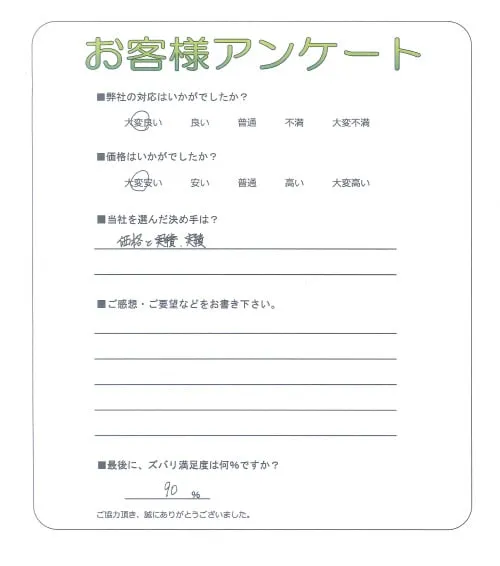 お客様アンケート
■弊社の対応はいかがでしたか？
大変良い 良い 普通 不満 大変不満
■価格はいかがでしたか？
大変安い 安い 普通 高い 大変高い
■当社を選んだ決め手は？
価格と 実績
■ご感想・ご要望などをお書き下さい。
■最後に、ズバリ満足度は何％ですか？
90 ％
ご協力頂き、誠にありがとうございました。